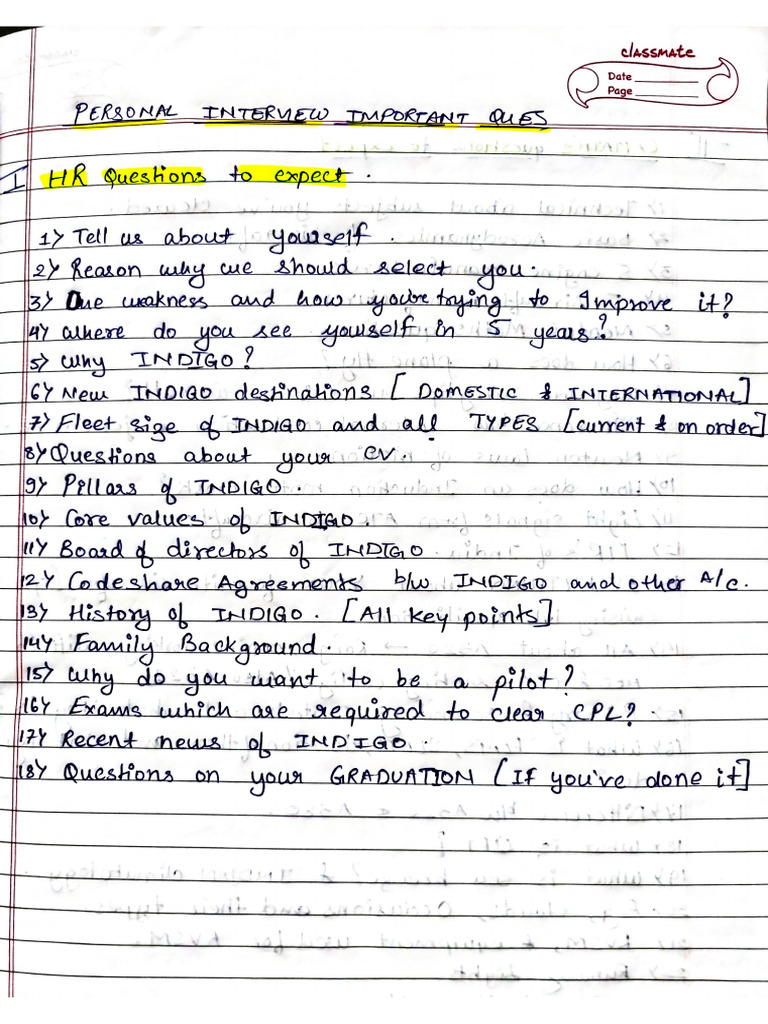 classmate
Date
Page
PERSONAL INTERVIEW IMPORTANT QUES
I HR Questions to expect.
1) Tell us about yourself.
2) Reason why we should select you.
3) One weakness and how you're trying to Improve it?
4) Where do you see yourself in 5 years?
5) Why INDIGO?
6) New INDIGO destinations [DOMESTIC & INTERNATIONAL]
7) Fleet size of INDIGO and all TYPES [current & on order]
8) Questions about your CV.
9) Pillars of INDIGO.
10) Core values of INDIGO
11) Board of directors of INDIGO
12) Codeshare Agreements b/w INDIGO and other A/c.
13) History of INDIGO. [All key points]
14) Family Background.
15) Why do you want to be a pilot?
16) Exams which are required to clear CPL?
17) Recent news of INDIGO.
18) Questions on your GRADUATION [If you've done it]